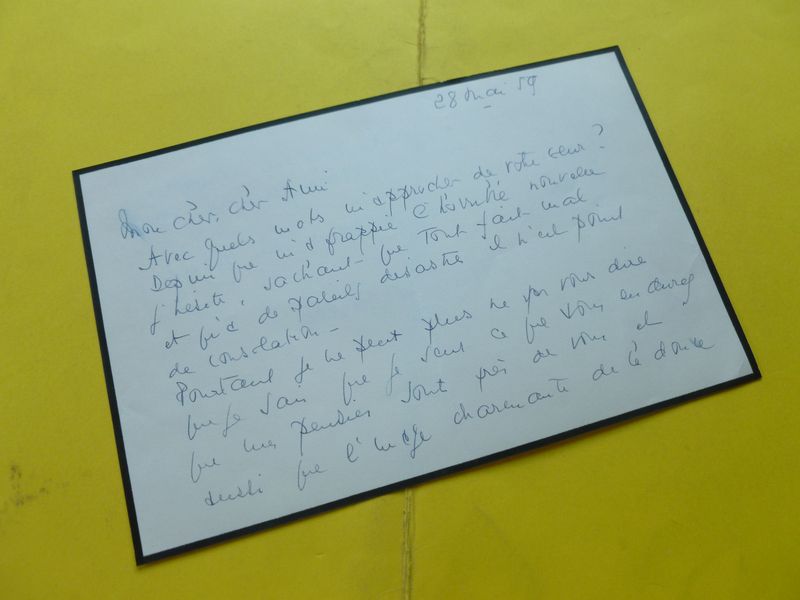 28 mai 59
Mon cher, cher Ami
Avec quels mots m'approcher de votre cœur?
Depuis que m'a frappée l'horrible nouvelle
j'hésite, sachant que tout fait mal
et qu'à de pareils désastres il n'est point
de consolation -
Pourtant je ne peux plus ne pas vous dire
que je sais que je sens ce que vous endurez
que mes pensées sont près de vous et
aussi que l'image charmante de la douce